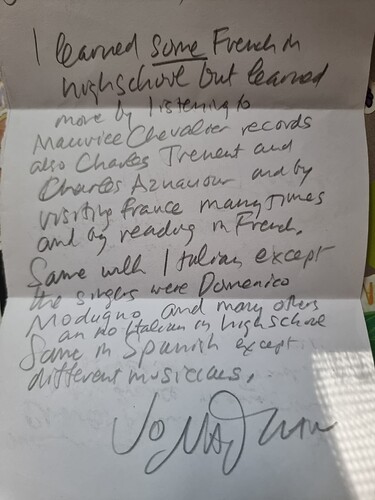 I learned some French in
highschool but learned
more by listening to
Maurice Chevalier records
also Charles Trenent and
Charles Aznavour and by
visiting France many times
and by reading in French.
Same with Italian except
the singers were Domenico
Modugno and many others
an no Italian in highschool
Same in Spanish except
different musicians.